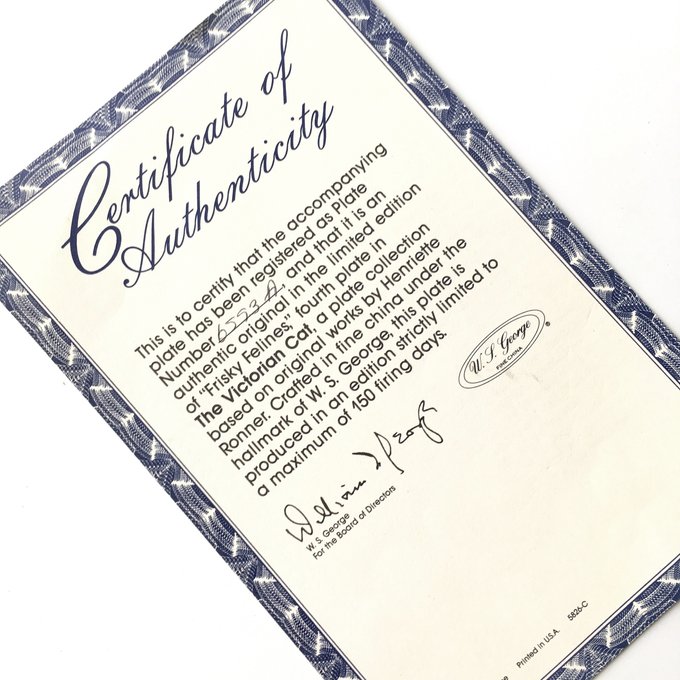 Certificate of
Authenticity
This is to certify that the accompanying
plate has been registered as Plate
Number 6553A and that it is an
authentic original in the limited edition
of "Frisky Felines," fourth plate in
The Victorian Cat, a plate collection
based on original works by Henriette
Ronner. Crafted in fine china under the
hallmark of W. S. George, this plate is
produced in an edition strictly limited to
a maximum of 150 firing days.
W. S. George ®
FINE CHINA
William S George
W. S. George
For the Board of Directors
Printed in U.S.A. 5826-C